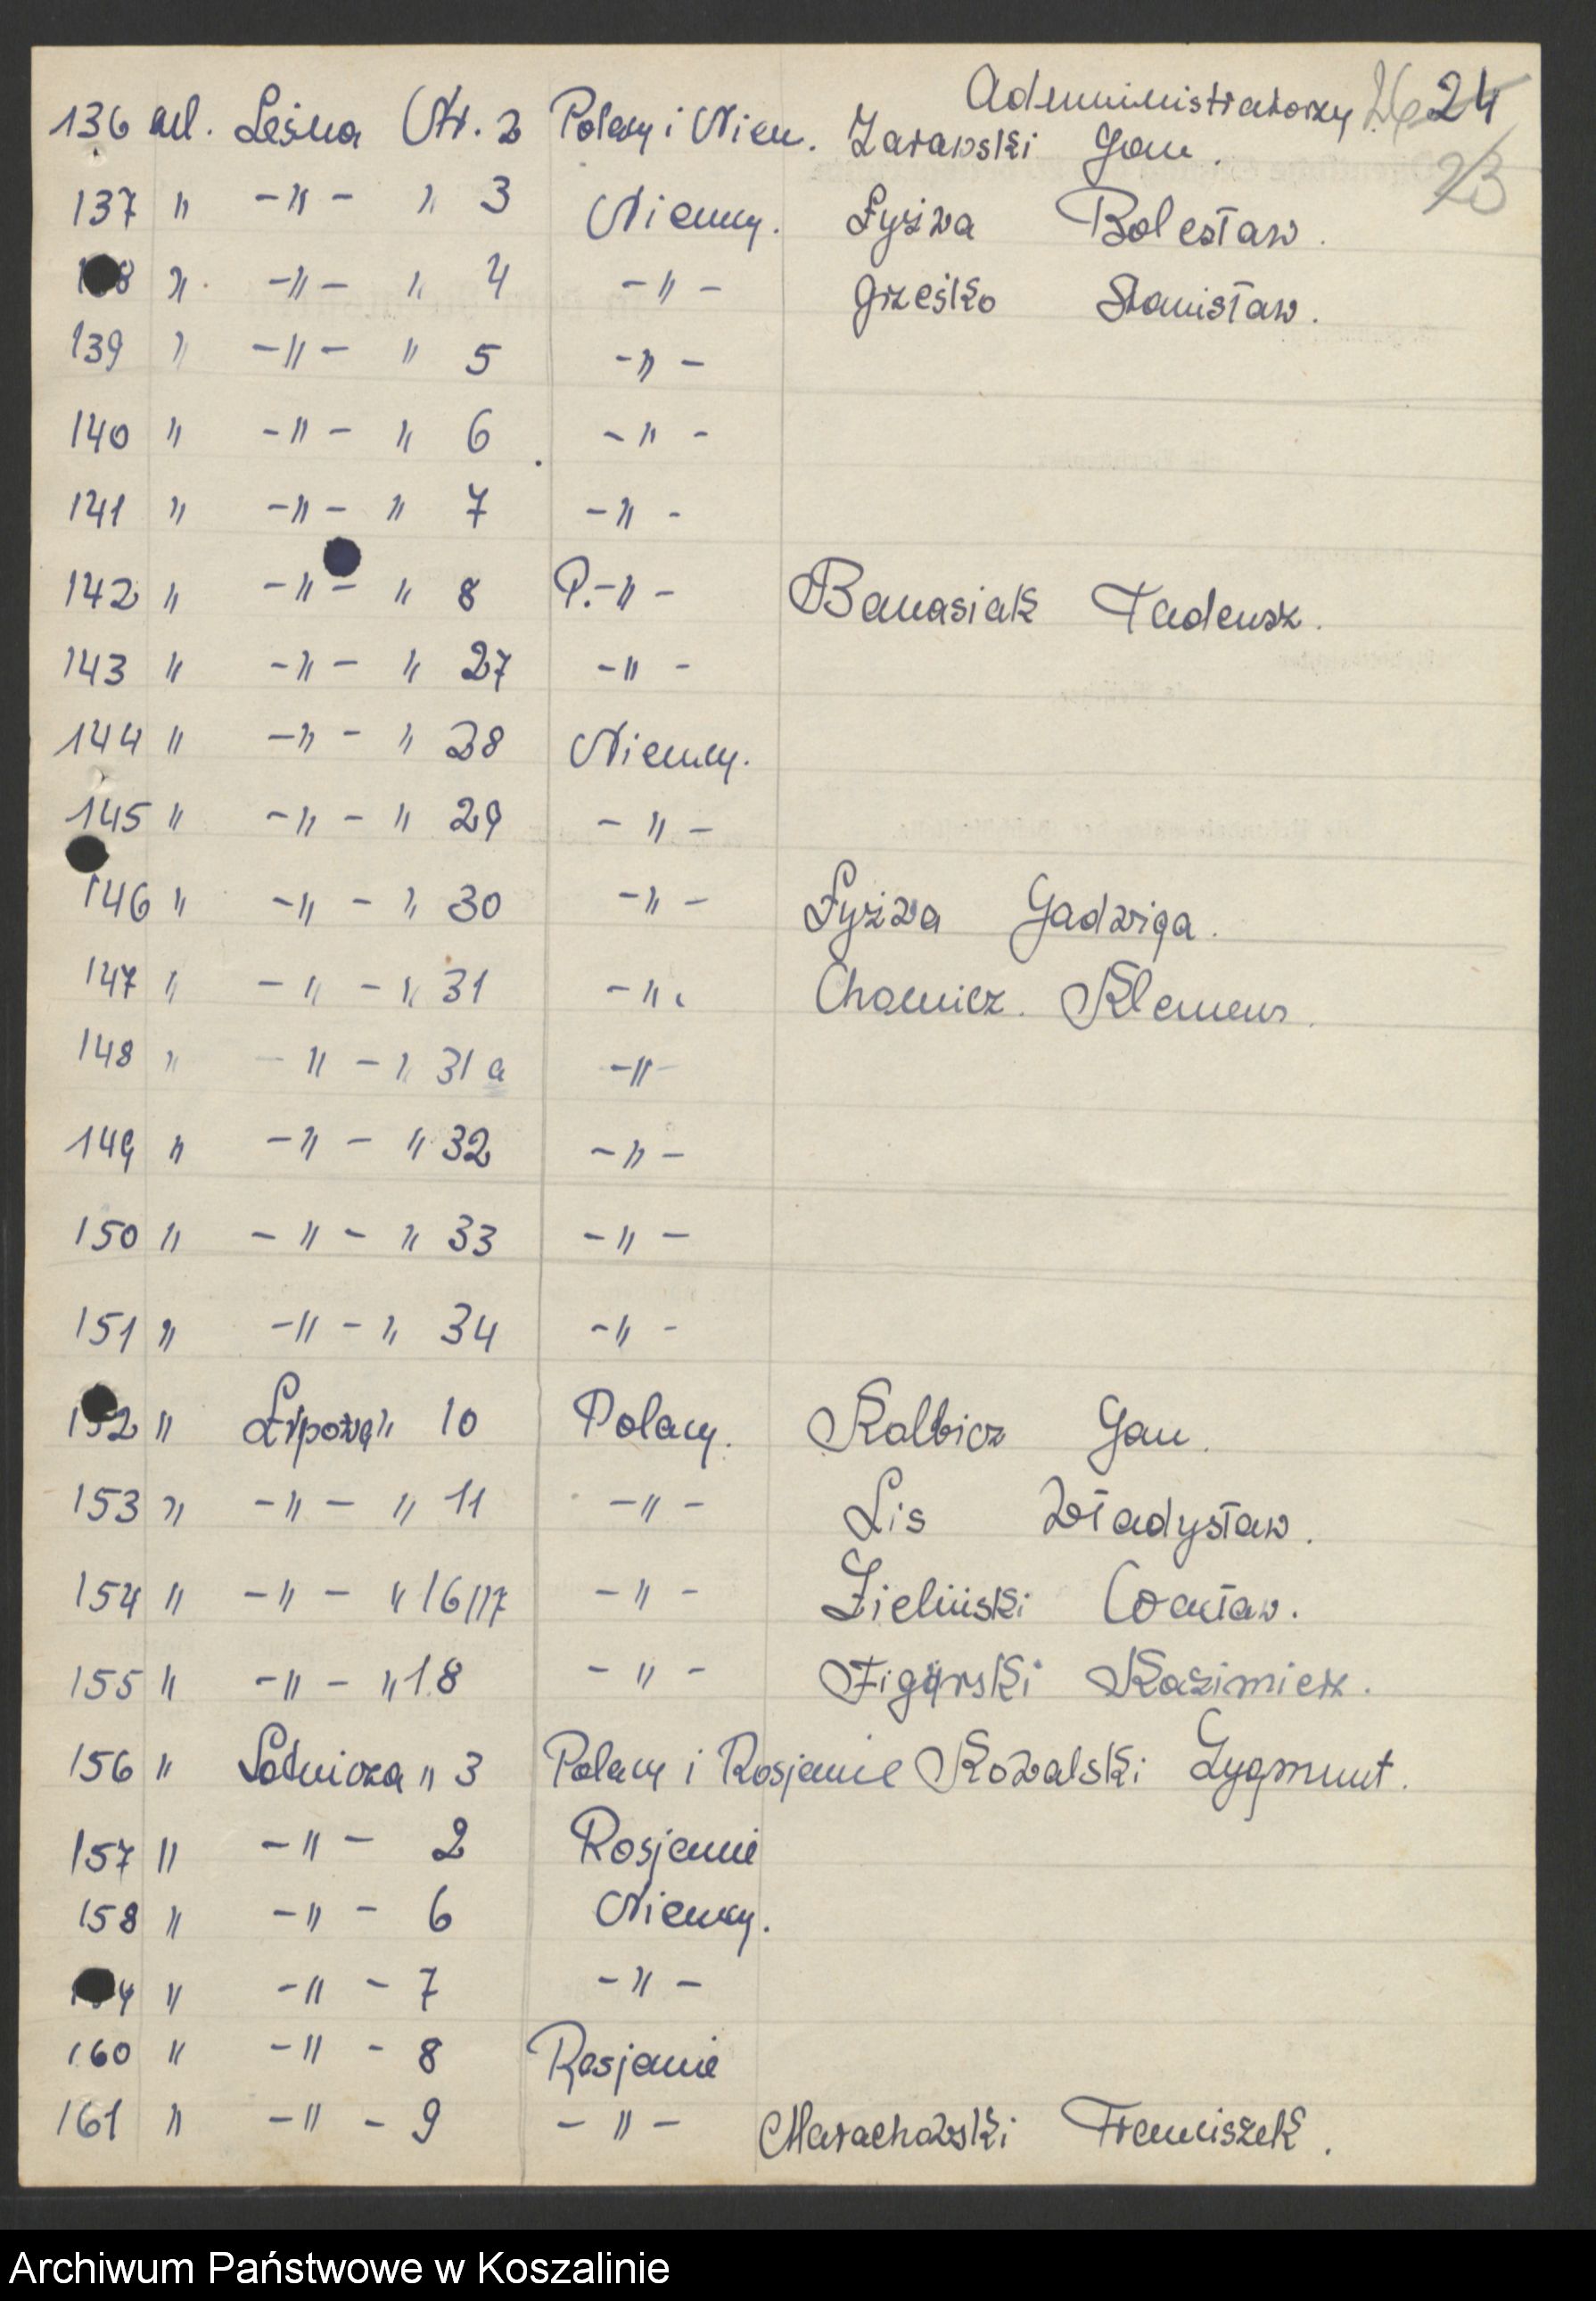 Administratorzy 26 24
23
136 ul. Leśna Nr. 2 Polacy i Niem. Zarawski Jan.
137 " -"- " 3 Niemcy. Łyżwa Bolesław.
138 ". -"- " 4 -"- Grześko Stanisław.
139 " -"- " 5 -"-
140 " -"- " 6 -"-
141 " -"- " 7 -"-
142 " -"- " 8 P.-"- Banasiak Tadeusz.
143 " -"- " 27 -"-
144 " -"- " 28 Niemcy.
145 " -"- " 29 -"-
146 " -"- " 30 -"- Łyżwa Jadwiga.
147 " -"- " 31 -"- Chomicz. Klemens.
148 " -"- " 31 a -"-
149 " -"- " 32 -"-
150 " -"- " 33 -"-
151 " -"- " 34 -"-
152 " Lipowa " 10 Polacy. Kalbicz Jan.
153 " -"- " 11 -"- Lis Władysław.
154 " -"- " 16/17 -"- Zieliński Wacław.
155 " -"- " 18 -"- Figurski Kazimierz.
156 " Lotnicza " 3 Polacy i Rosjanie Kowalski Zygmunt.
157 " -"- 2 Rosjanie
158 " -"- 6 Niemcy.
" -"- 7 -"-
160 " -"- 8 Rosjanie
161 " -"- 9 -"- Marachowski Franciszek.
Archiwum Państwowe w Koszalinie